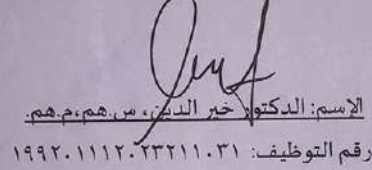 الإسم: الدكتور خير الدين، س.هم،م.هم.
رقم التوظيف: ١٩٩٢٠١١١٢٠٢٣٢١١٠٣١